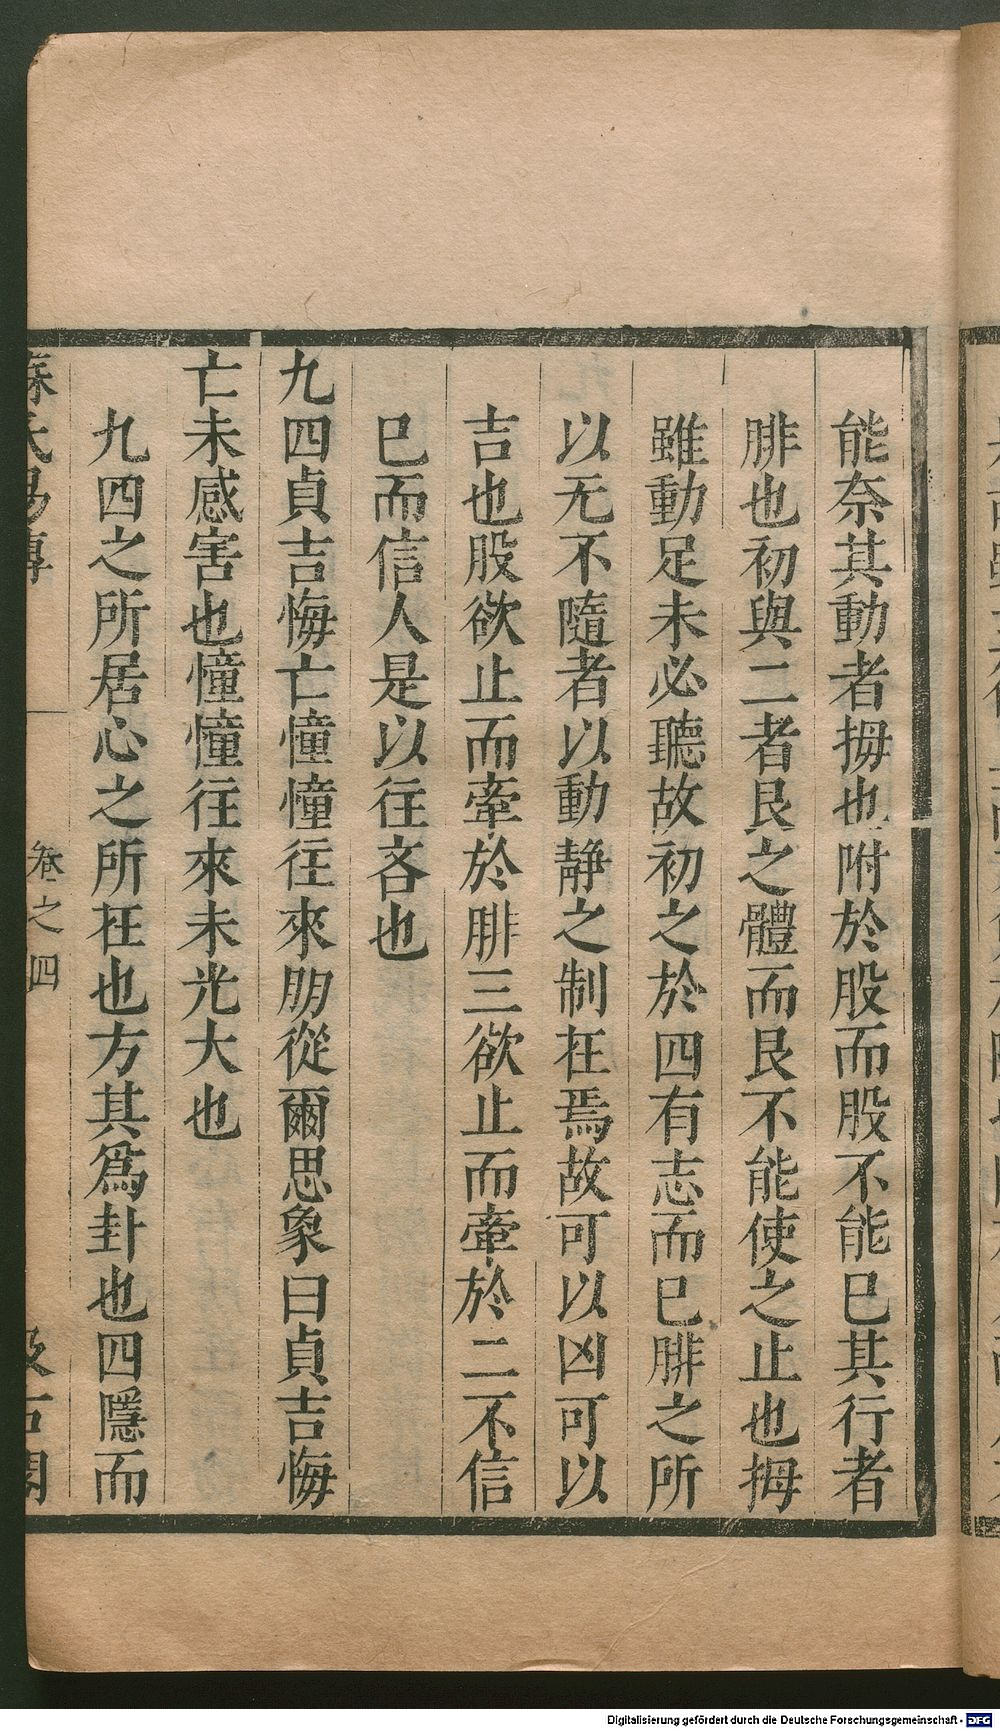 能奈其動者拇也附於股而股不能已其行者
腓也初與二者艮之體而艮不能使之止也拇
雖動足未必聽故初之於四有志而已腓之所
以无不隨者以動静之制在焉故可以凶可以
吉也股欲止而牽於腓三欲止而牽於二不信
已而信人是以往吝也
九四貞吉悔亡憧憧往來朋從爾思象曰貞吉悔
亡未感害也憧憧往來未光大也
九四之所居心之所在也方其爲卦也四隱而
蘇氏易傳
卷之四
汲古閣
Digitalisierung gefördert durch die Deutsche Forschungsgemeinschaft - DFG